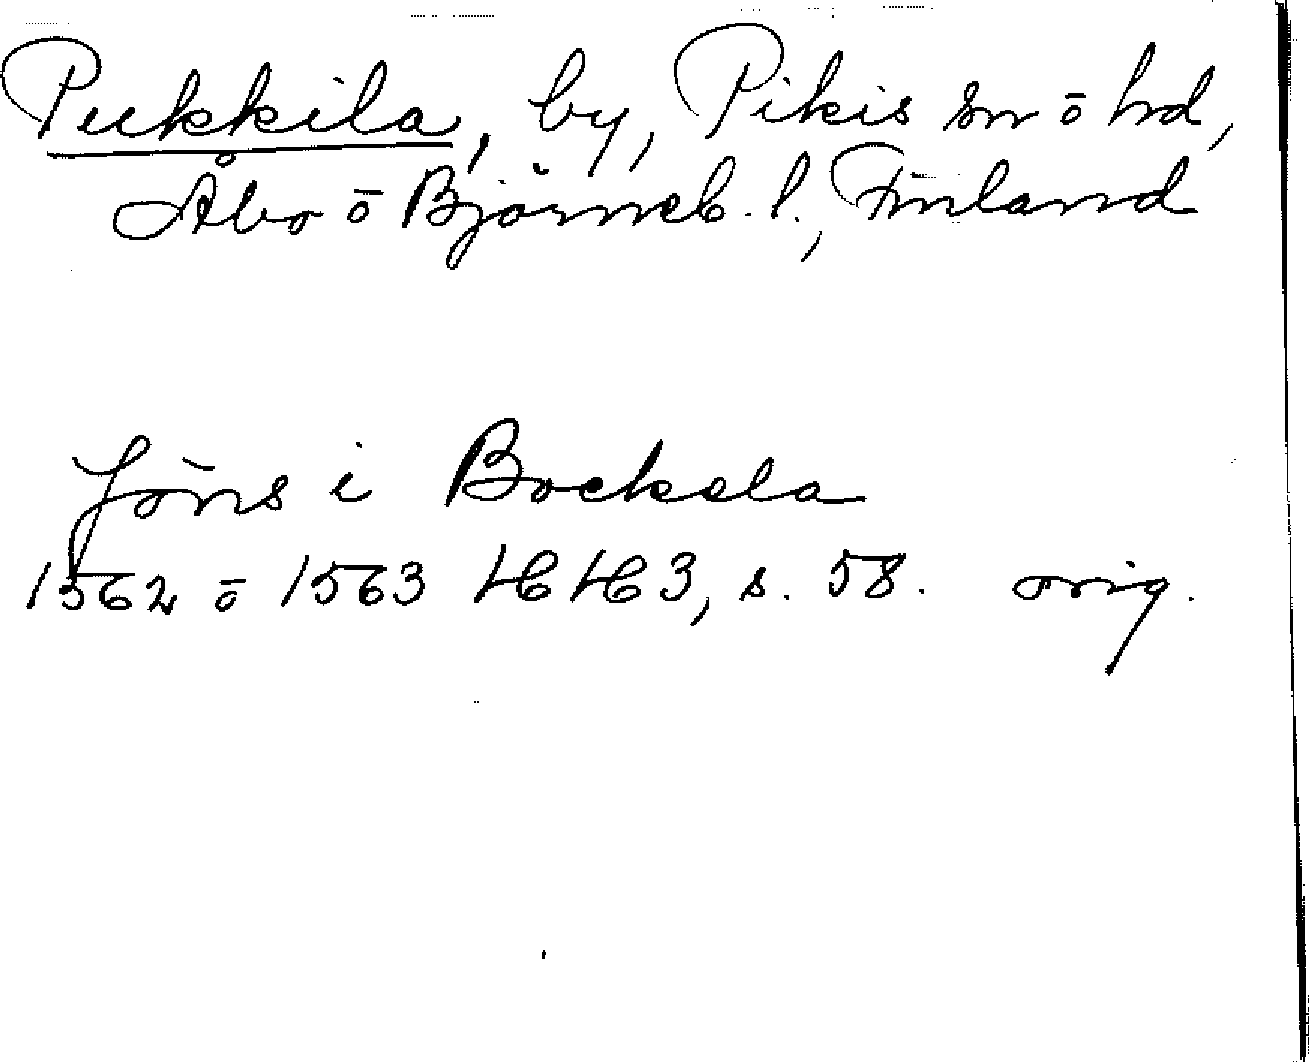 Pukkila, by, Pikis sn ō hd,
Åbo ō Björneb. l., Finland
Jöns i Bockala
1562 ō 1563 HH3, s. 58. orig.